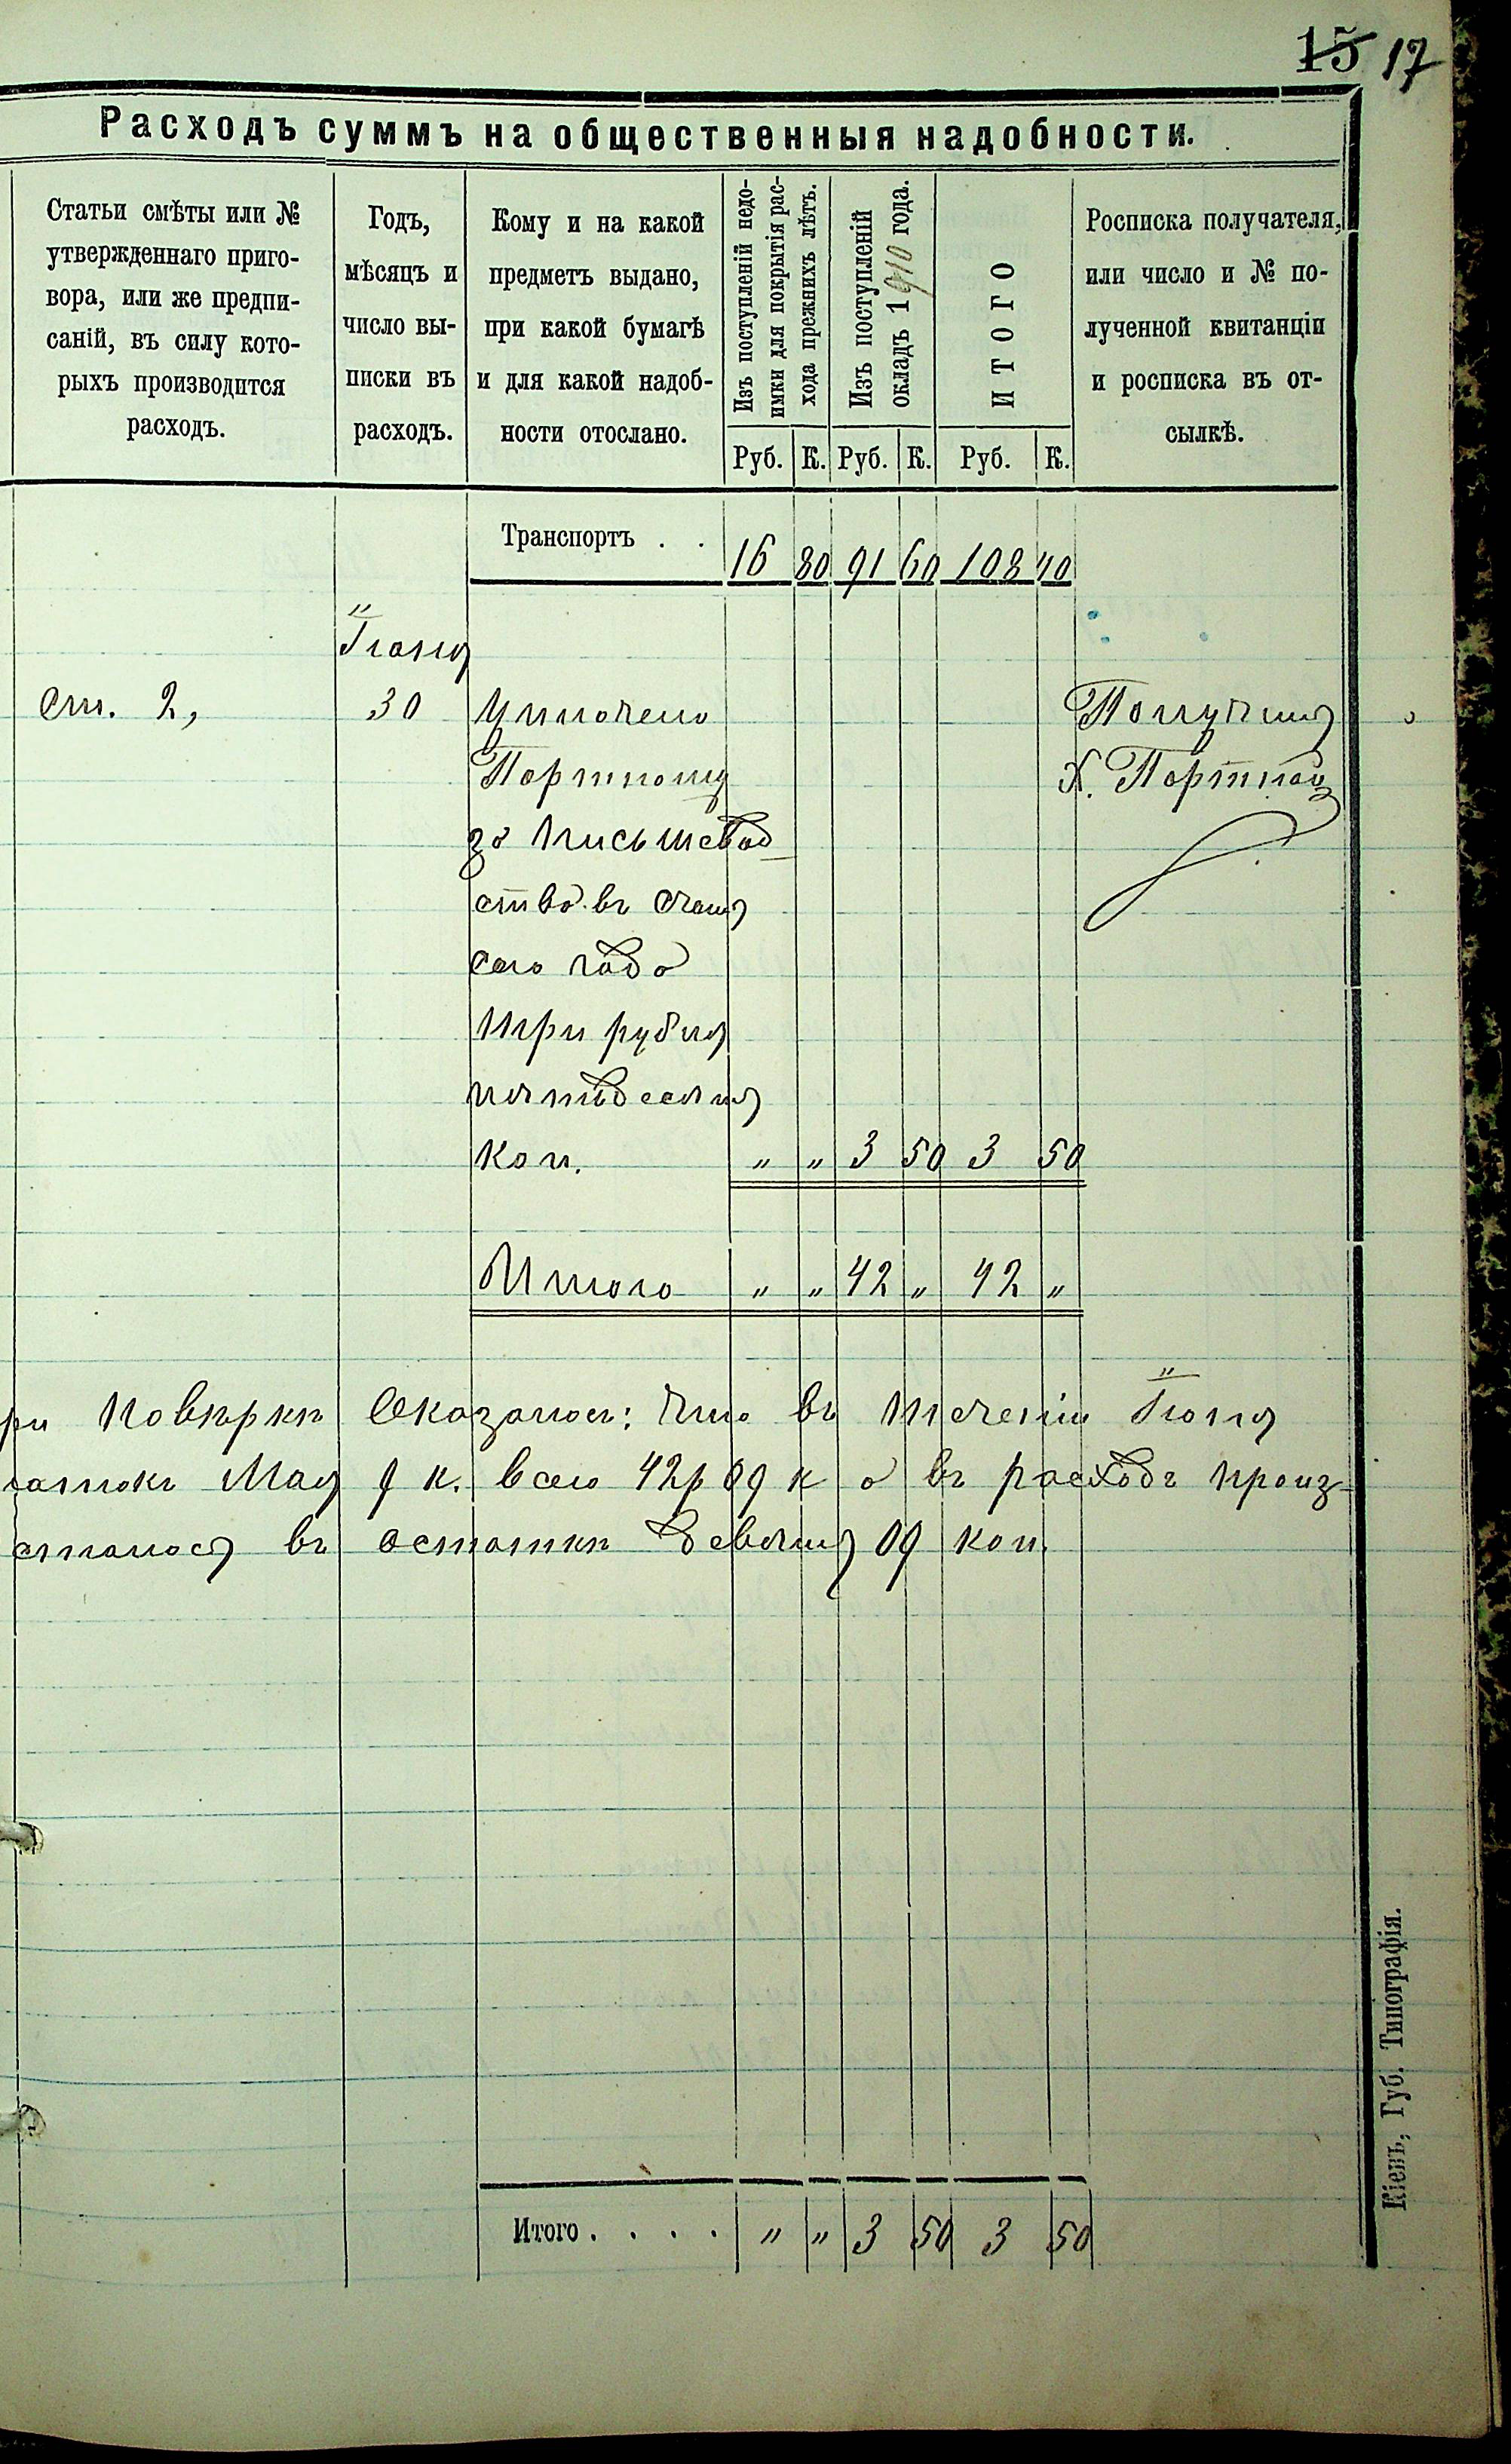 15 17
Расходъ суммъ на общественныя надобности.
Статьи смѣты или №
утвержденнаго приго-
вора, или же предпи-
саній, въ силу кото-
рыхъ производится
расходъ.
Годъ,
мѣсяцъ и
число вы-
писки въ
расходъ.
Кому и на какой
предметъ выдано,
при какой бумагѣ
и для какой надоб-
ности отослано.
Изъ поступленій недо-
имки для покрытія рас-
хода прежнихъ лѣтъ.
Изъ поступленій
окладъ 1910 года.
ИТОГО
Росписка получателя,
или число и № по-
лученной квитанціи
и росписка въ от-
сылкѣ.
Руб. К. Руб. К. Руб. К.
Транспортъ . . 16 80 91 60 108 40
Іюня
ст. 2, 30 Уплочено Получилъ
Портному Х. Портной
за письмовод
ство въ
сего года
три рубля
пятьдесятъ
коп. " " 3 50 3 50
Итого " " 42 " 42 "
ри повѣркѣ Оказалось: что въ теченіи Іюня
татокъ Мая 9 к. всего 42 р 09 к а въ расходъ произ-
сталося въ остаткѣ девять 09 коп.
Итого . . . . " " 3 50 3 50
Кіевъ, Губ. Типографія.